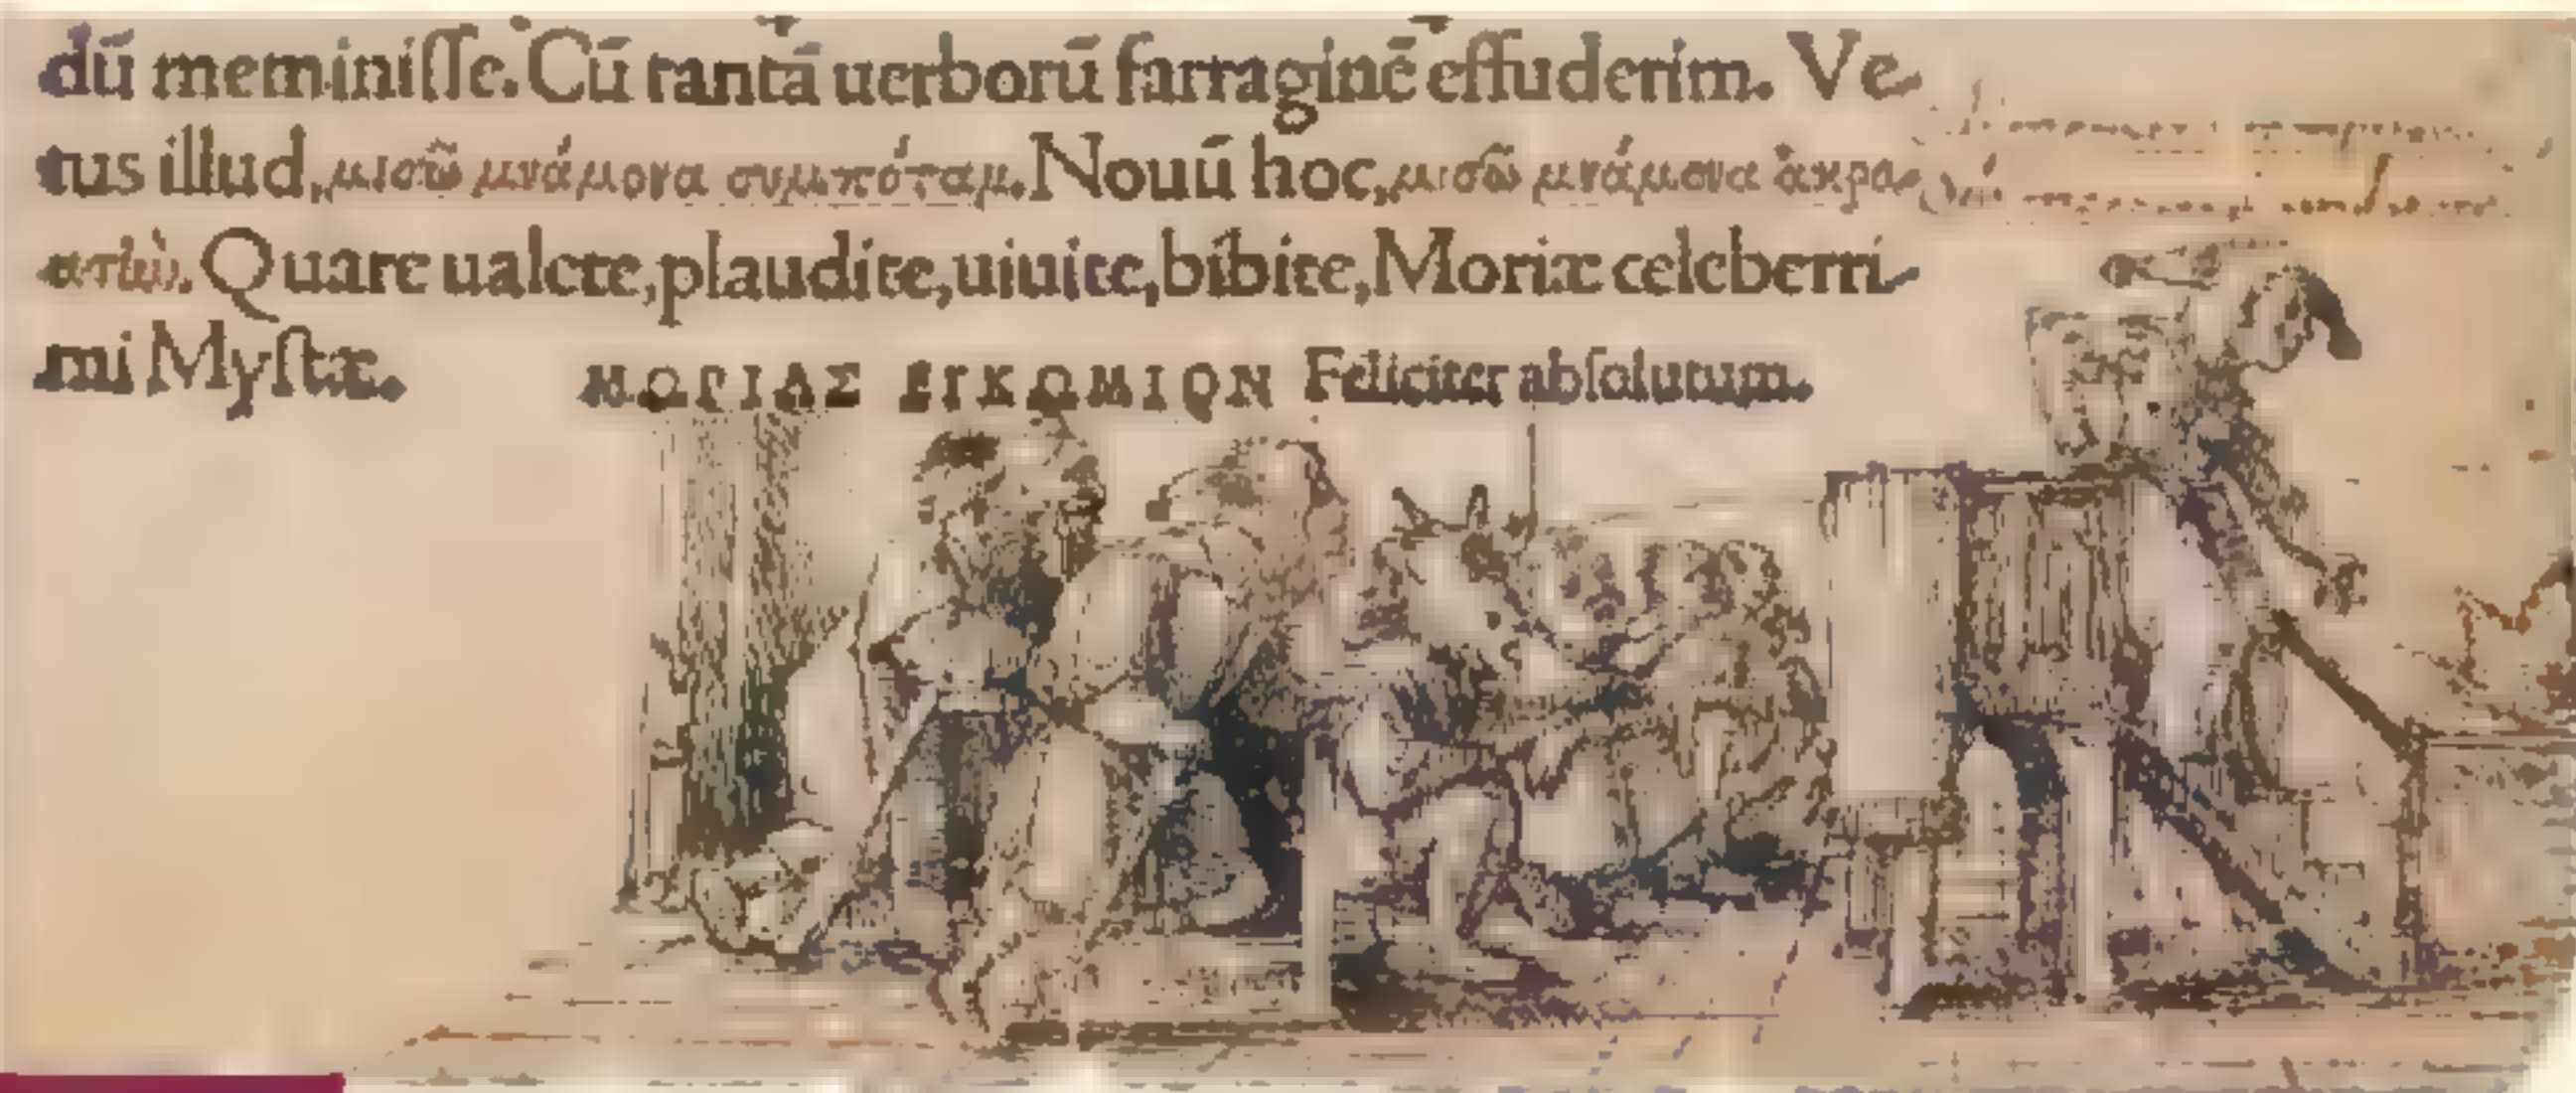 dū meminiſſe. Cū tantā uerborū farraginē effuderim. Ve-
tus illud, μισῶ μνάμονα συμπόταμ. Nouū hoc, μισῶ μνάμονα ἀκρο-
Quare ualete, plaudite, uiuite, bibite, Moriæ celeberri-
mi Myſtæ.
ΜΩΡΙΑΣ ΕΓΚΩΜΙΟΝ Feliciter abſolutum.